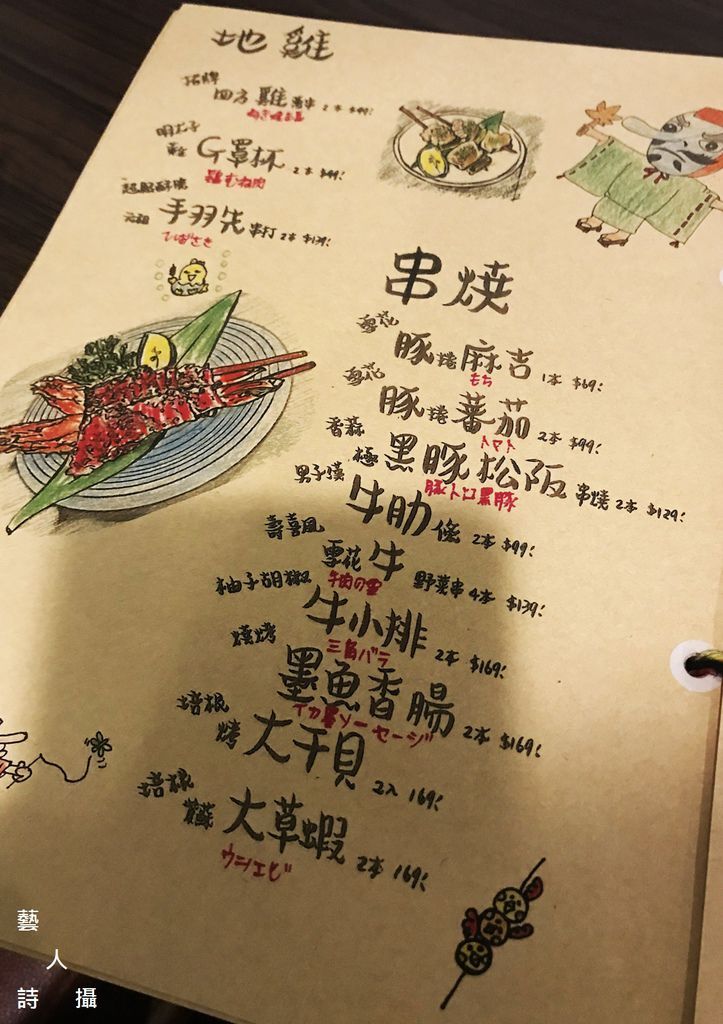 地雞
招牌
四方雞蔥串 2本 $99.
明太子
G罩杯 2本 $99.
雞むね肉
元祖 手羽先 串打 2本 $139.
てばさき
串燒
雪花 豚捲麻吉 1本 $69.
もち
雪花 豚捲蕃茄 2本 $99.
トマト
香蒜 極黑豚松阪 串燒 2本 $129.
豚トロ黑豚
男子燒 牛肋條 2本 $99.
壽喜風 雪花牛 野菜串 4本 $139.
牛肉の雪
柚子胡椒 牛小排 2本 $169.
三角バラ
燒烤 墨魚香腸 2本 $169.
イカ墨ソーセージ
培根 烤 大干貝 2入 169.
培根 大草蝦 2本 169.
ウシエビ
藝
人
詩 攝